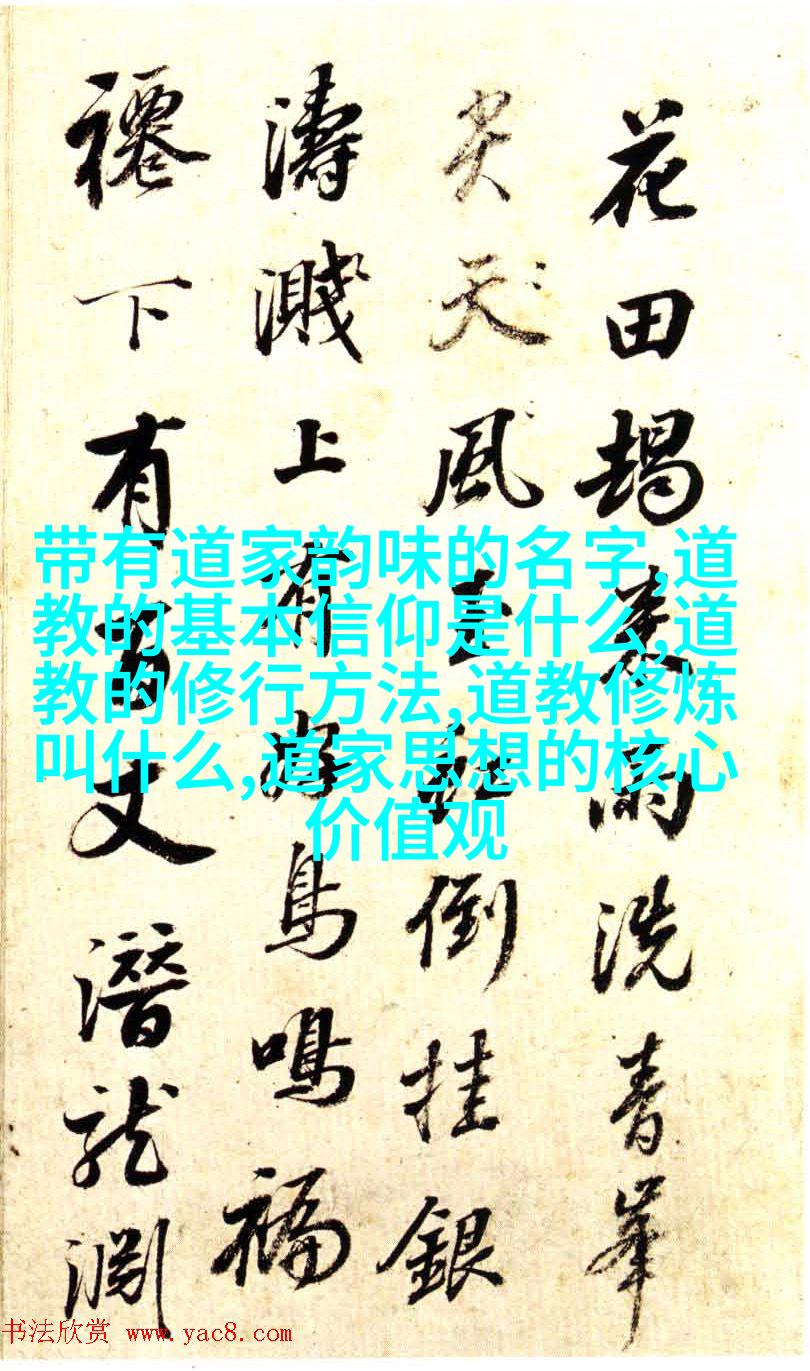 花田雨洗青峯
天風玉虹倒挂銀
濤濺上有好鳥鳴福
下有百丈潛龍淵
带有道家韵味的名字,道
教的基本信仰是什么,道
教的修行方法,道教修炼
叫什么,道家思想的核心
价值观
书法欣赏 www.yac8.com